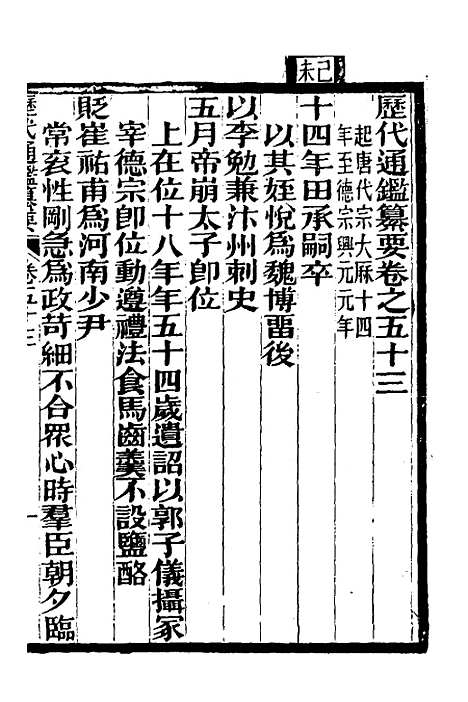 己未
歷代通鑑纂要卷之五十三
起唐代宗大厤十四
年至德宗興元元年
十四年田承嗣卒
以其姪悅爲魏博畱後
以李勉兼汴州刺史
五月帝崩太子卽位
上在位十八年年五十四歲遺詔以郭子儀攝冢
宰德宗卽位動遵禮法食馬齒羹不設鹽酪
貶崔祐甫爲河南少尹
常袞性剛急爲政苛細不合眾心時羣臣朝夕臨
歷代通鑑纂要 卷五十三 一